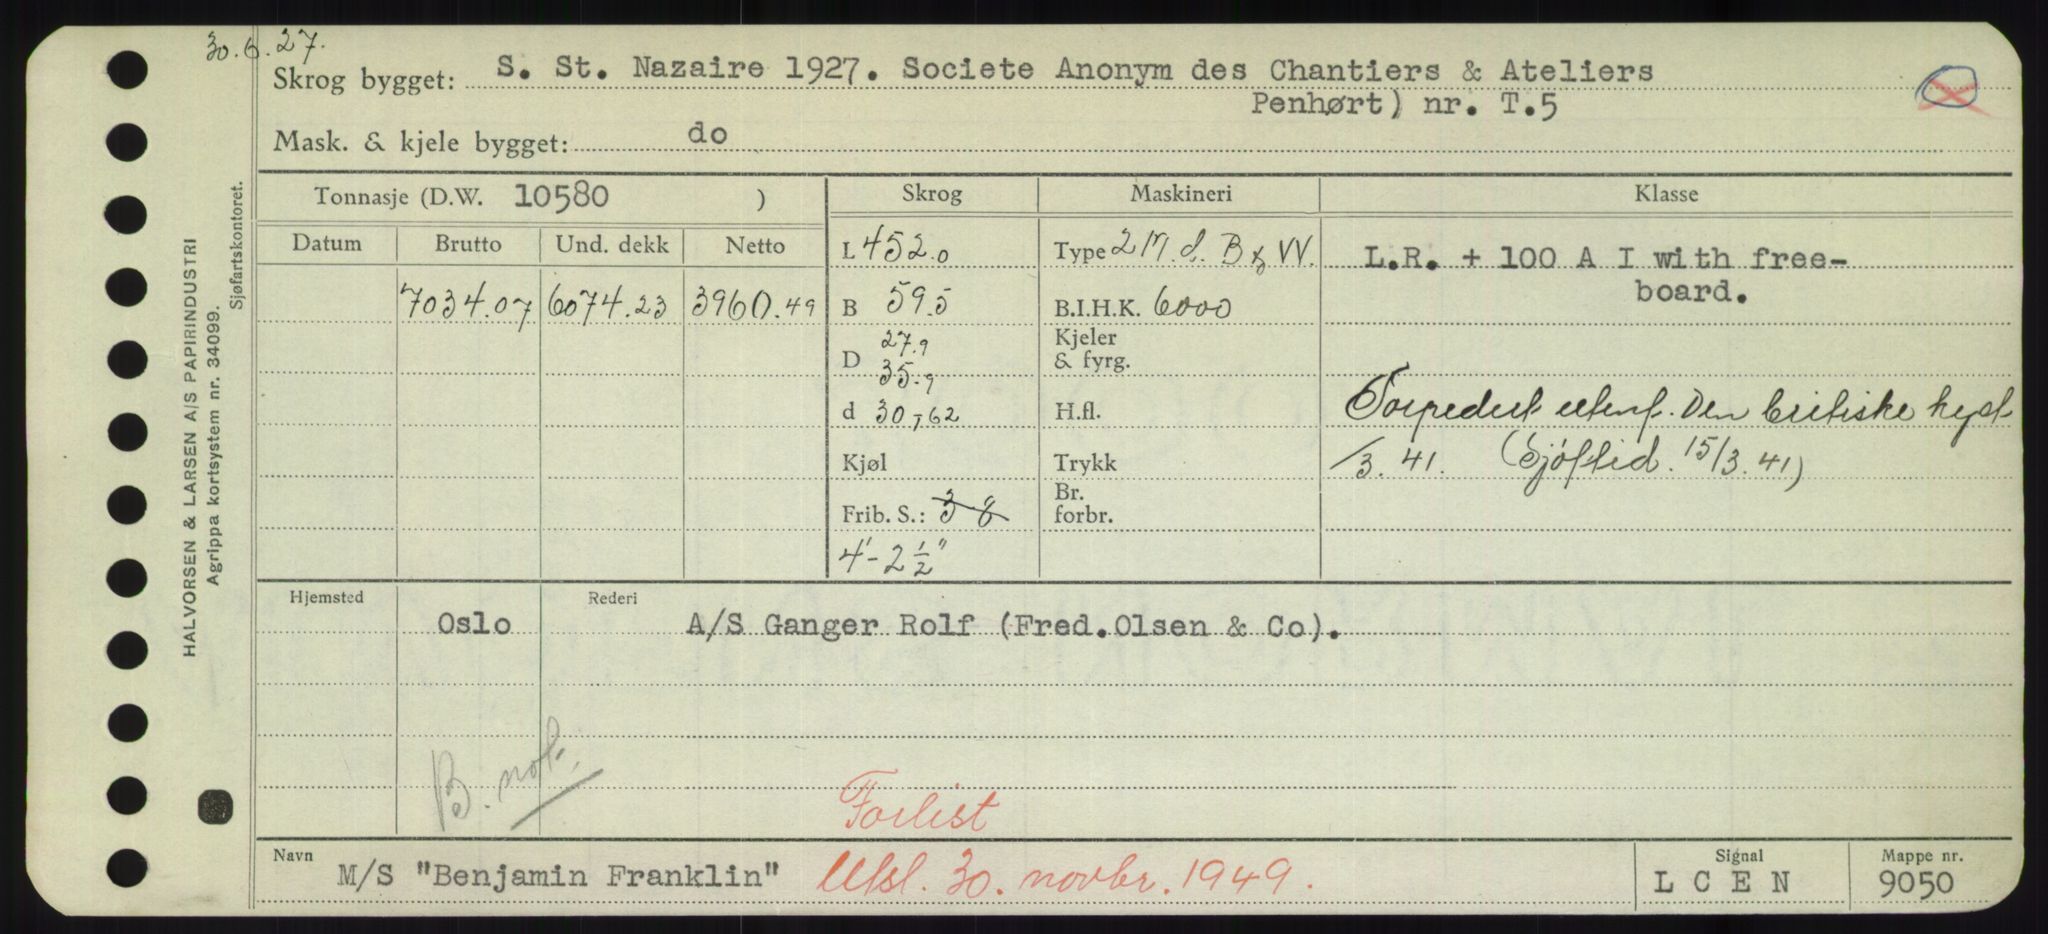 30.6.27.
Skrog bygget: S. St. Nazaire 1927. Societe Anonym des Chantiers & Ateliers
Penhørt) nr. T.5
Mask. & kjele bygget: do
Tonnasje (D.W. 10580 )
Skrog
Maskineri
Klasse
Datum Brutto Und. dekk Netto
7034.07 6074.23 3960.49
L 452.0
B 59.5
D 27.9
35.9
d 30,62
Kjøl
Frib. S.: 3-8
4'-2 1/2"
Type 2 M. d. B & W.
B.I.H.K. 6000
Kjeler
& fyrg.
H.fl.
Trykk
Br.
forbr.
L.R. + 100 A I with free-
board.
Torpedert utenf. Den britiske kyst
/3. 41. (Sjöftid. 15/3. 41)
Hjemsted
Rederi
Oslo
A/S Ganger Rolf (Fred.Olsen & Co).
B. not.
Forlist
Navn
M/S "Benjamin Franklin" Utsl. 30. novbr. 1949.
Signal
L C E N
Mappe nr.
9050
HALVORSEN & LARSEN A/S PAPIRINDUSTRI
Agrippa kortsystem nr. 34099.
Sjøfartskontoret.